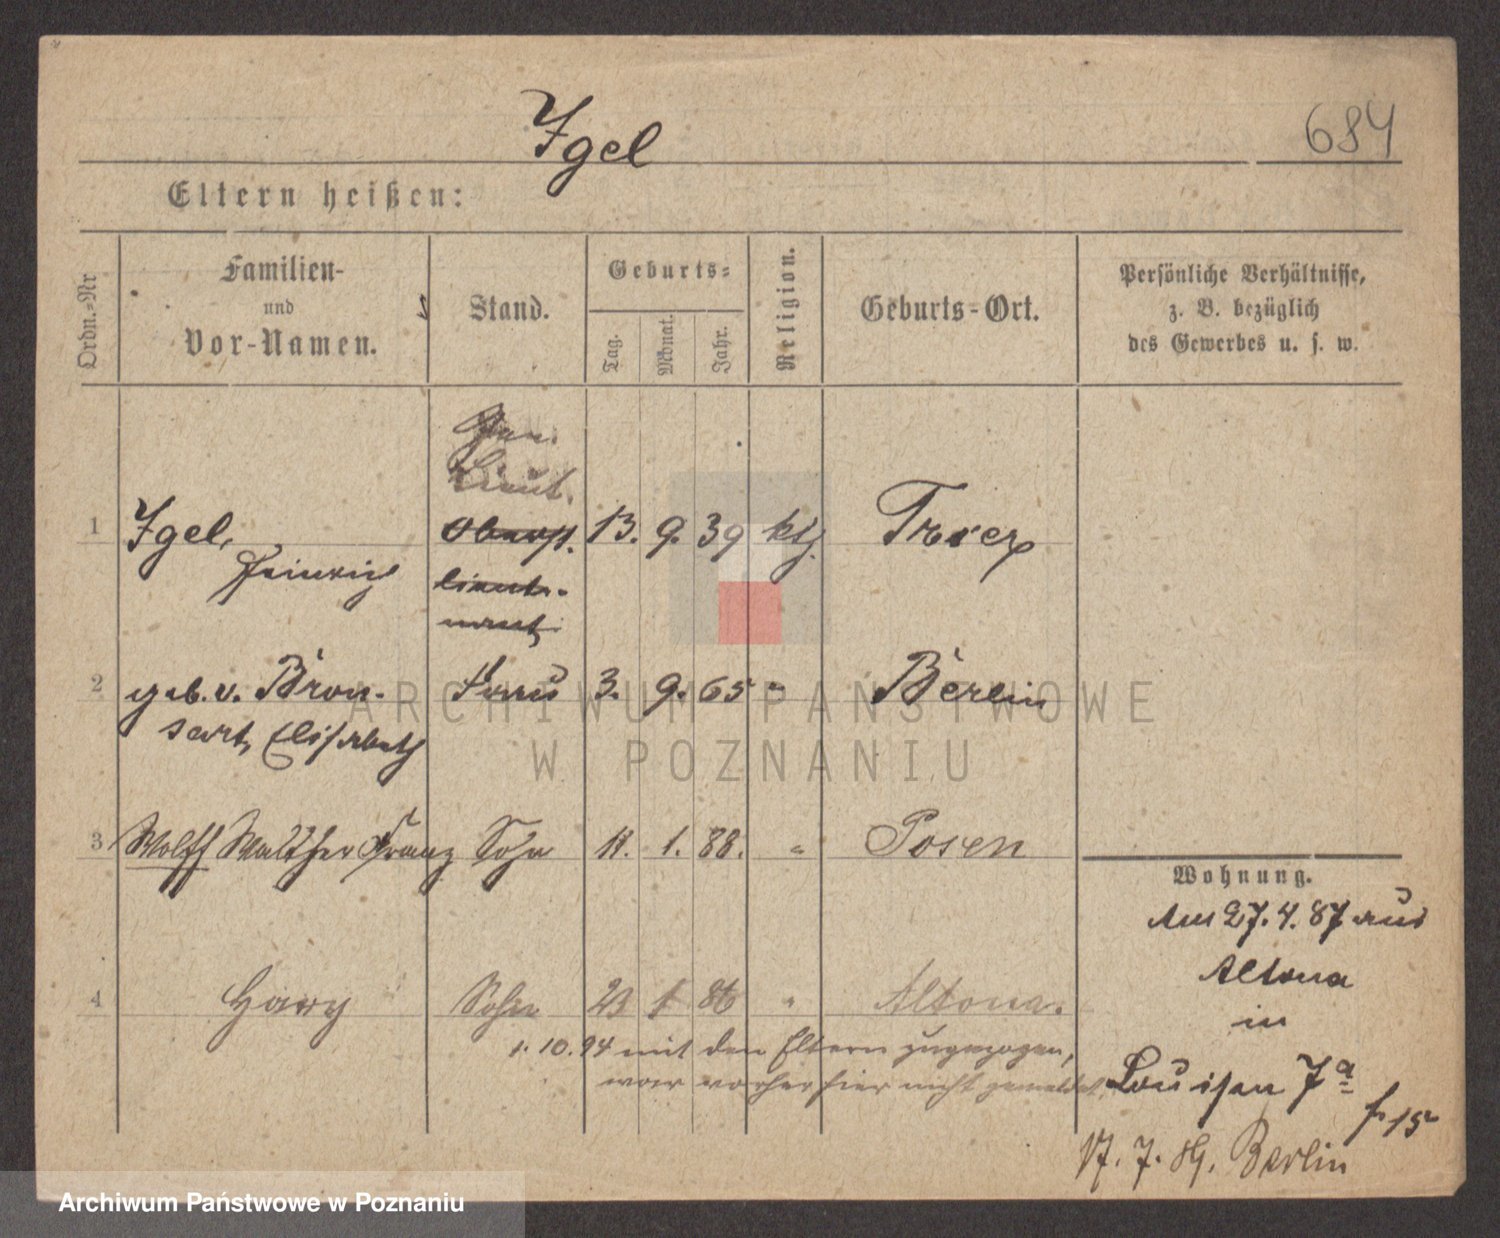 Igel
684
Eltern heißen:
Ordn.-Nr
Familien-
und
Vor-Namen.
Stand.
Geburts-
Tag.
Monat.
Jahr.
Religion.
Geburts-Ort.
Persönliche Verhältnisse,
z. B. bezüglich
des Gewerbes u. s. w.
Gen.
Lieut.
1 Igel, Oberst. 13. 9. 39 ktz. Trier
Heinrich lieute-
nant
2 geb. v. Bron- Frau 3. 9. 65 " Berlin
sart, Elisabeth
3 Wolff Walther Franz Sohn 11. 1. 88. " Posen
Wohnung.
Am 27. 4. 87 aus
Altona
in
Louisen 7a
f. 15
17. 7. 89. Berlin
4 Harry Sohn 23 1 86 " Altona.
1. 10. 94 mit den Eltern zugezogen,
war vorher hier nicht gemeldet
ARCHIWUM PAŃSTWOWE
W POZNANIU
Archiwum Państwowe w Poznaniu